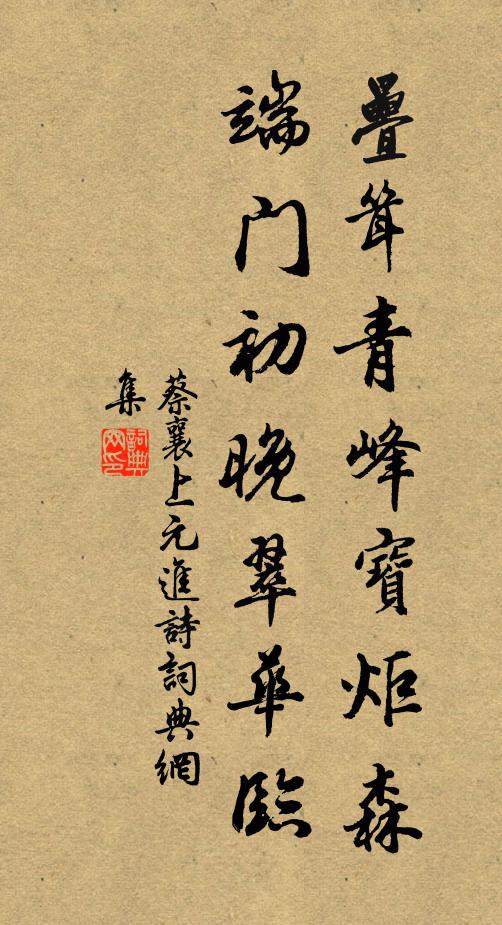 疊耸青峰寶炬森
端門初晚翠華臨
蔡襄上元進詩詞典網
集
詞典網印